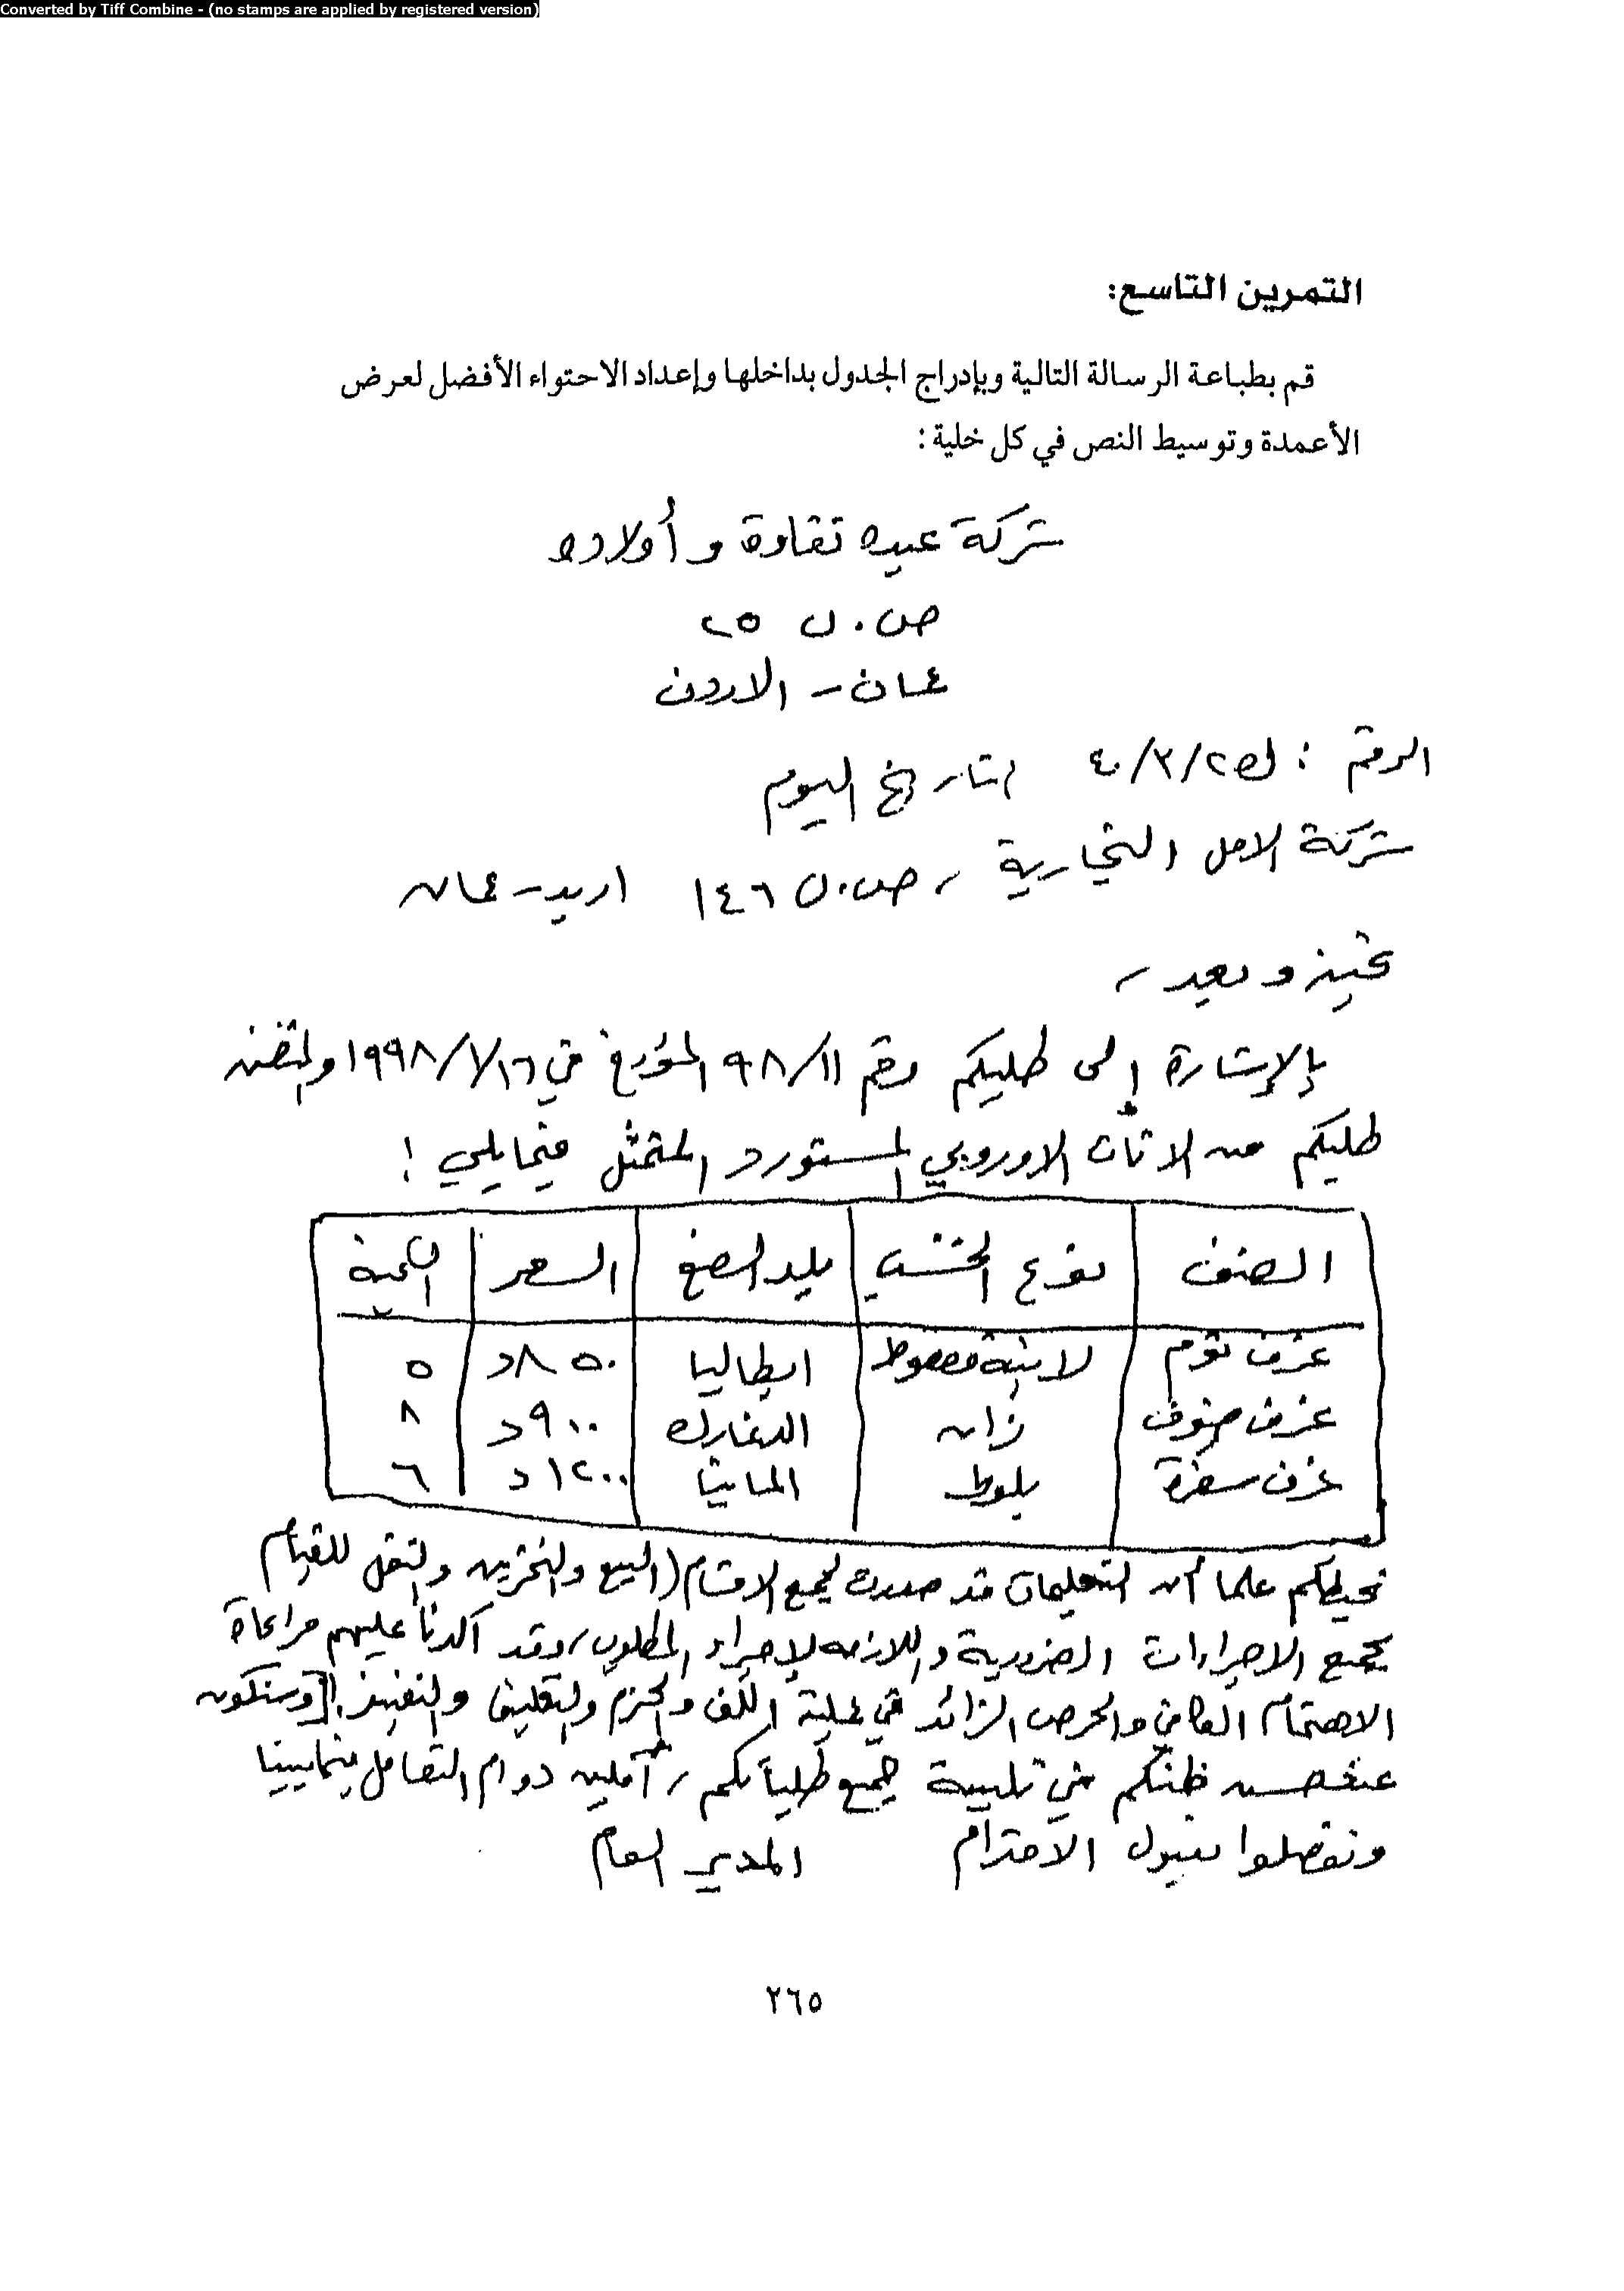 Converted by Tiff Combine - (no stamps are applied by registered version)
التمرين التاسع:
قم بطباعة الرسالة التالية وبإدراج الجدول بداخلها وإعداد الاحتواء الأفضل لعرض
الأعمدة وتوسيط النص في كل خلية:
شركة عبده نقاوة وأولاده
ص.ب ٢٥
عمان - الاردن
الرقم : ٤٠/٣/٢ تاريخ اليوم
شركة الامل التجارية، ص.ب ١٤٦ اربد - عمان
تحية وبعد،
بالإشارة إلى طلبكم رقم ٩٨/١١ المؤرخ في ١٩٩٨/١/١٦ والمتضمن
طلبكم من الاثاث الاوروبي المستورد المتمثل فيما يلي :
الصنف نوع الخشب بلد الصنع السعر الكمية
غرف نوم لاتيه مضغوط ايطاليا ٨٥٠ د ٥
غرف ضيوف زان الدنمارك ٩٠٠ د ٨
غرف سفرة بلوط المانيا ١٢٠٠ د ٦
نحيطكم علما أن التعليمات قد صدرت لجميع الاقسام (البيع والتخزين والنقل للقيام
بجميع الاجراءات الضرورية واللازمة لإجراء المطلوب، وقد أكدنا عليهم مراعاة
الاهتمام الكافي والحرص الزائد في عملية اللف والحزم والتغليف والتنفيذ وسنكون
عند حسن ظنكم في تلبية جميع طلباتكم، آملين دوام التعامل فيما بيننا
وتفضلوا بقبول الاحترام المدير العام
٢٦٥